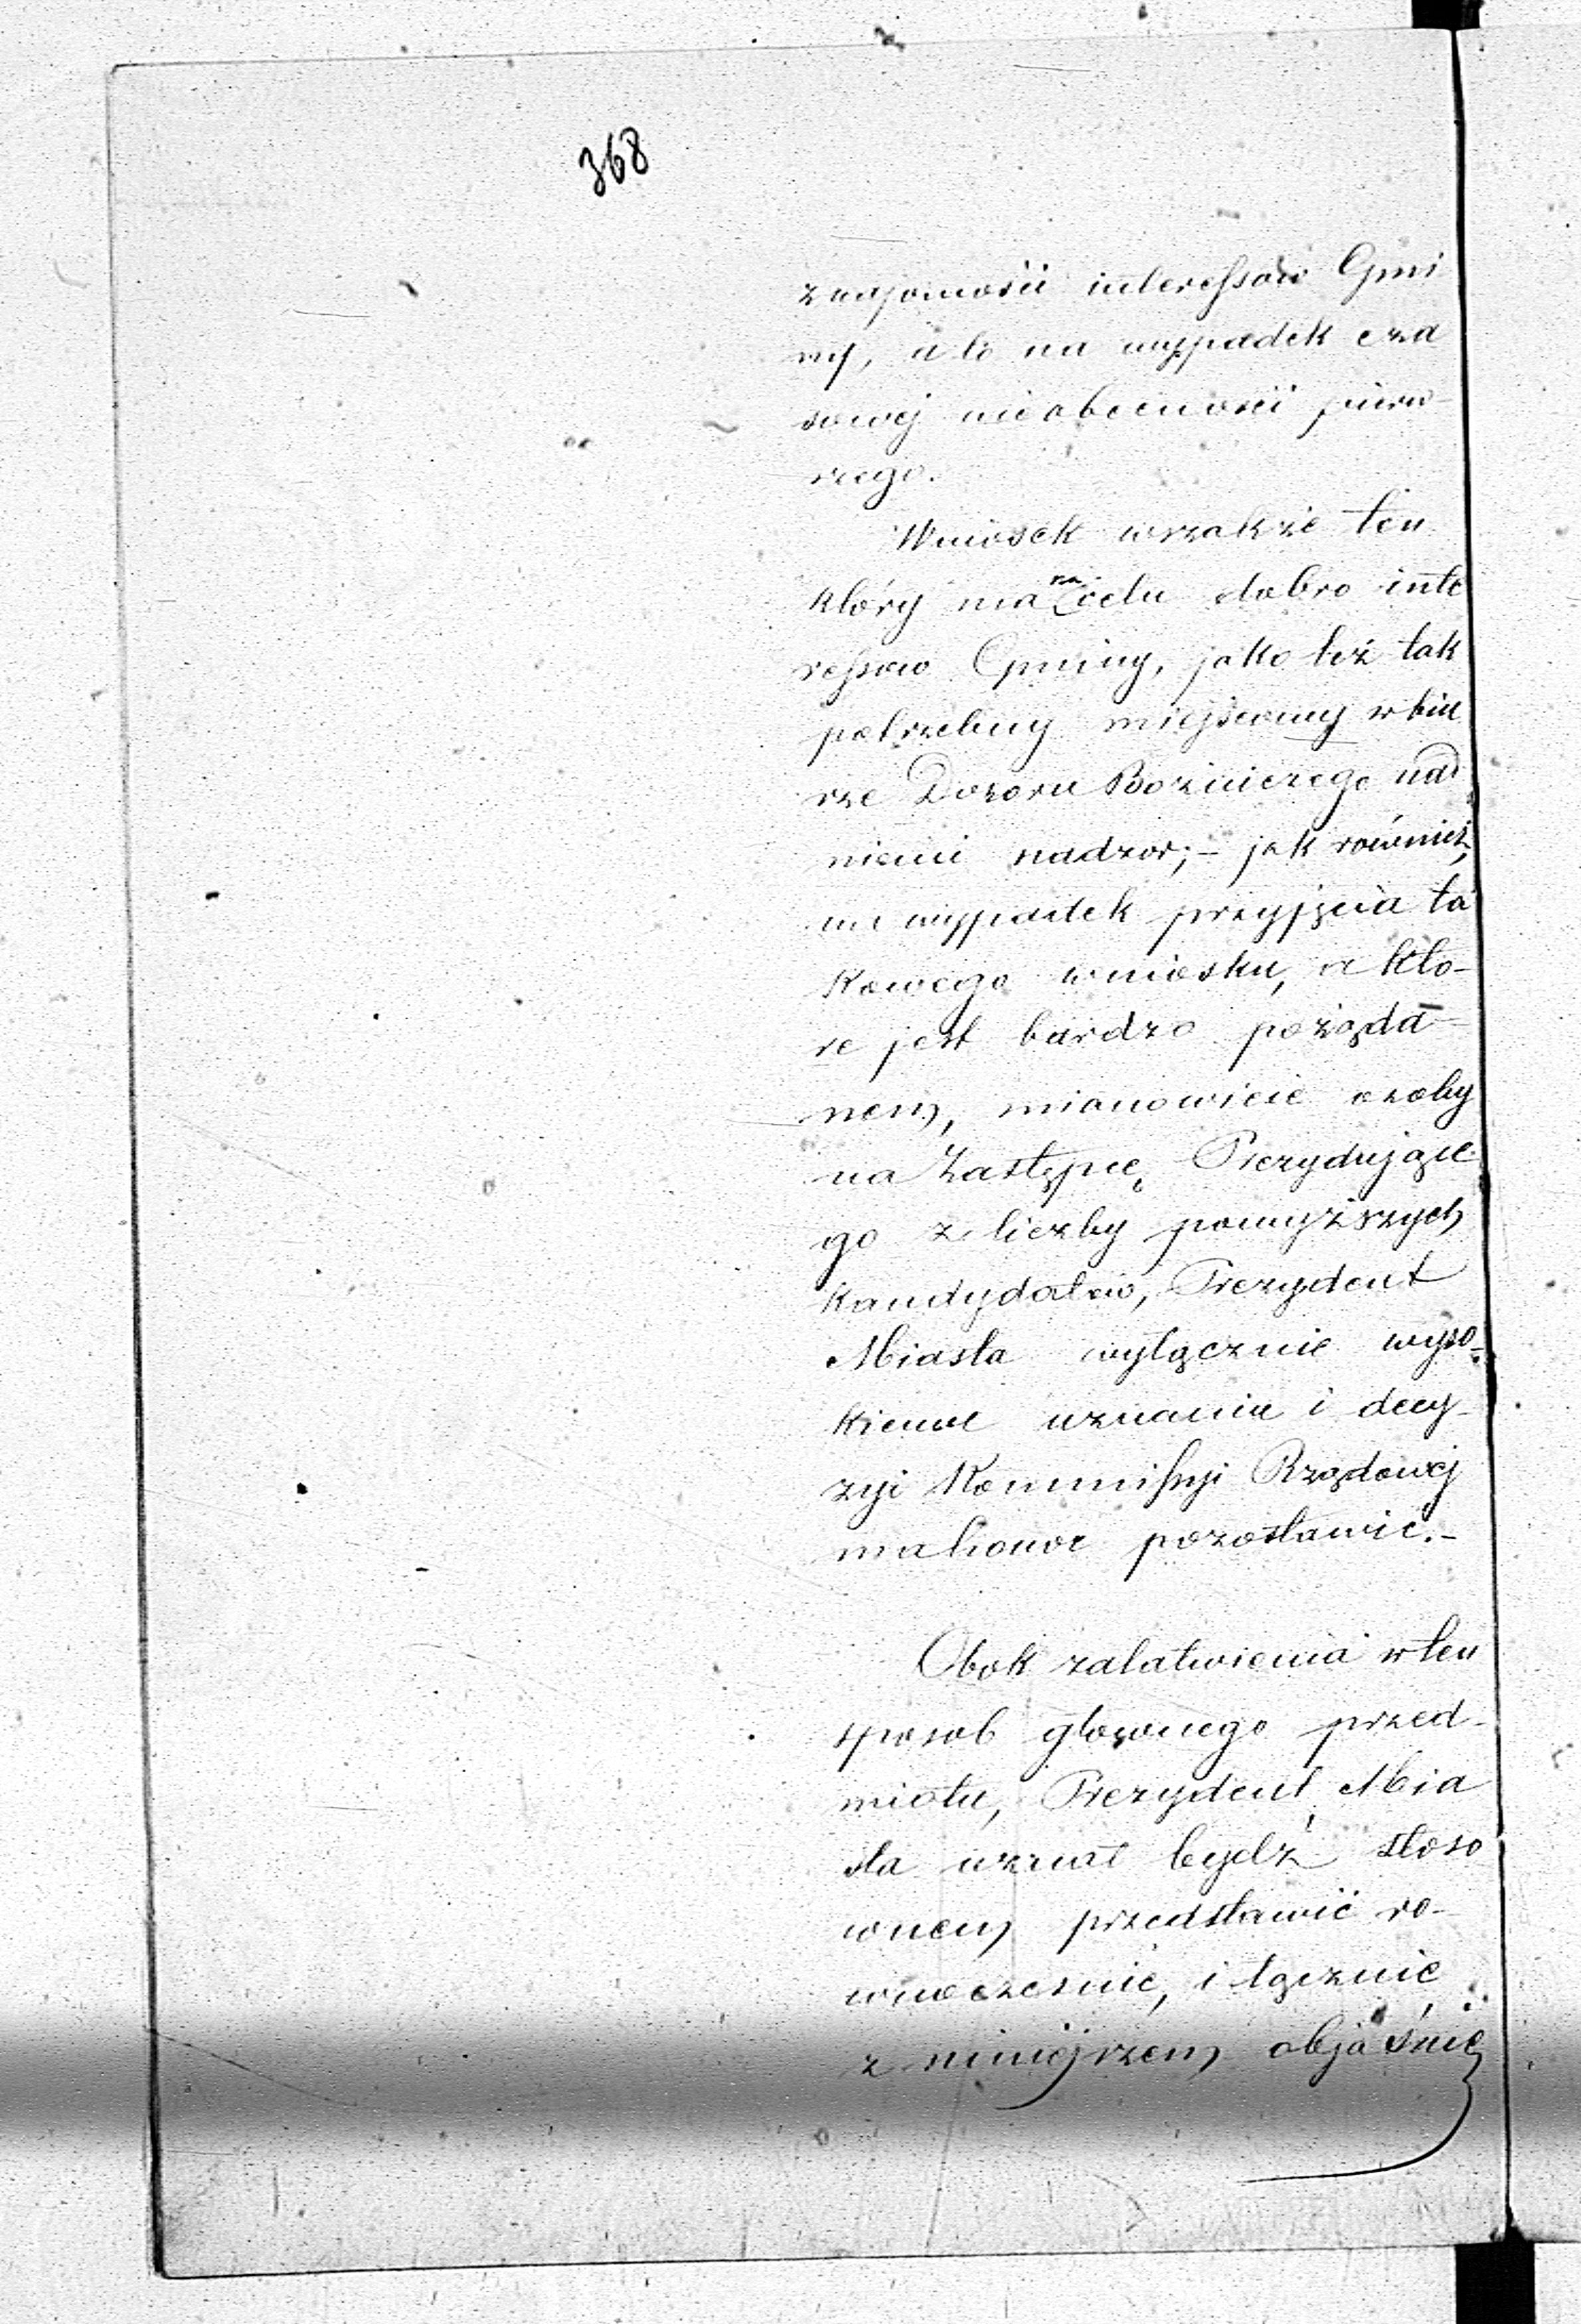 368
znajomości interessów Gmi
ny, a to na wypadek cza
sowej nieobecności pierw-
szego.
Wniosek wszakże ten
który ma na celu dobro inte
ressow Gminy, jako też tak
potrzebny miejscowy w biu
rze Dozoru Bożniczego nad
niemi nadzor;- jak również
na wypadek przyjęcia ta
kowego wniosku, a kto-
re jest bardzo pożąda-
nem, mianowicie osoby
na Zastępcę Prezydujące
go z liczby powyższych
kandydatow, Prezydent
Miasta wyłącznie wyso-
kiemu uznaniu i decy-
zyi Kommissyi Rządowej
ma honor pozostawić.-
Obok załatwienia w ten
sposob głownego przed-
miotu, Prezydent Mia
sta uznał bydź stoso
wnem przedstawić ro-
wnocześnie, i łącznie
z niniejszem objaśnie